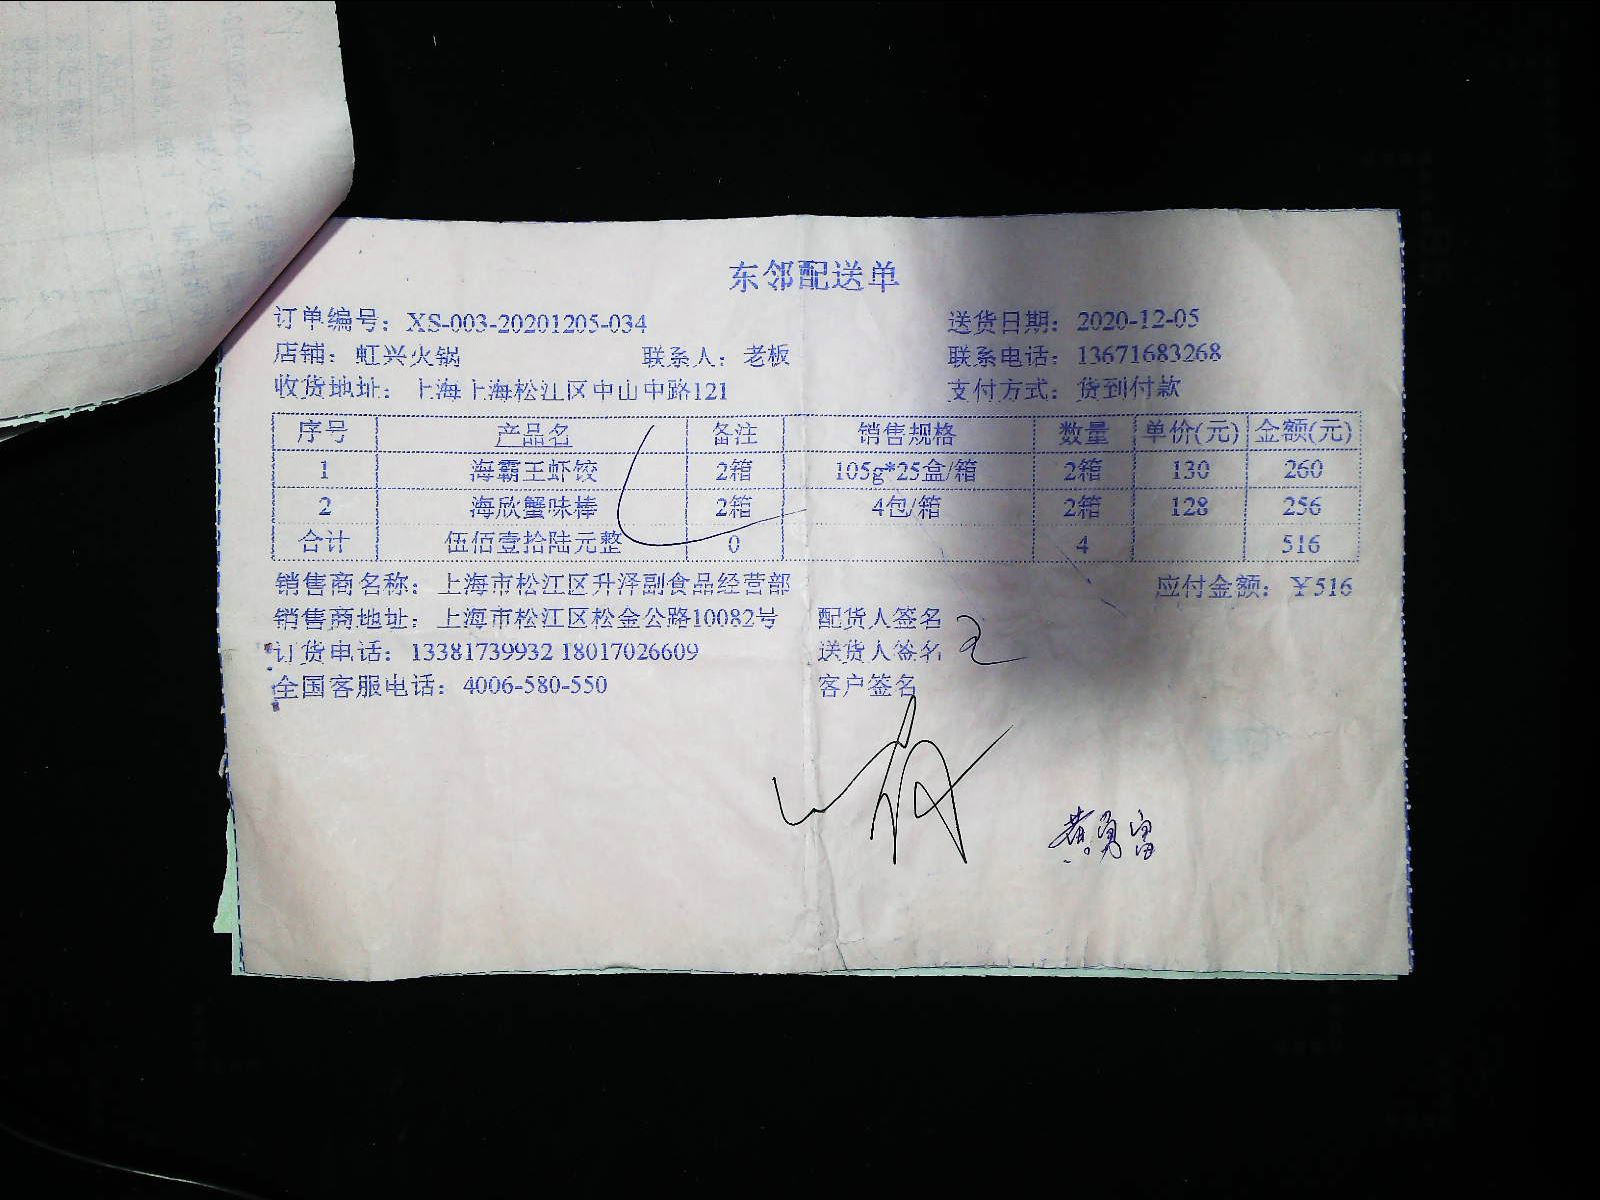 东邻配送单
订单编号：XS-003-20201205-034 送货日期：2020-12-05
店铺：虹兴火锅 联系人：老板 联系电话：13671683268
收货地址：上海上海松江区中山中路121 支付方式：货到付款
序号 产品名 备注 销售规格 数量 单价(元) 金额(元)
1 海霸王虾饺 2箱 105g*25盒/箱 2箱 130 260
2 海欣蟹味棒 2箱 4包/箱 2箱 128 256
合计 伍佰壹拾陆元整 0 4 516
销售商名称：上海市松江区升泽副食品经营部 应付金额：￥516
销售商地址：上海市松江区松金公路10082号 配货人签名
订货电话：13381739932 18017026609 送货人签名
全国客服电话：4006-580-550 客户签名
黄勇富